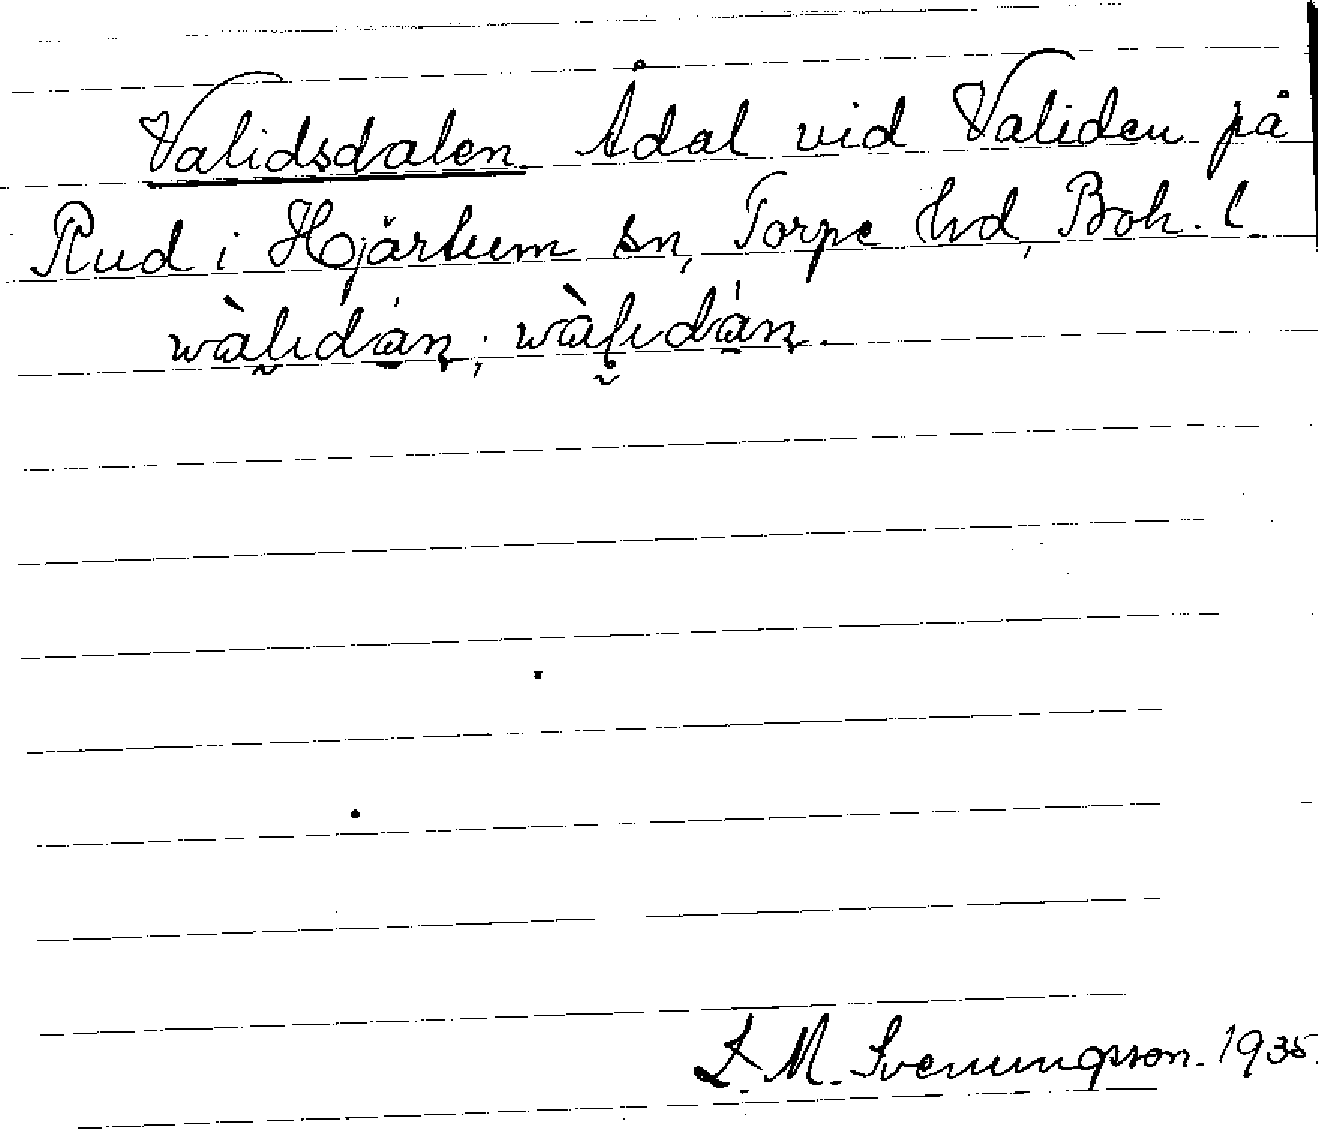 Validsdalen Ådal vid Validen på
Rud i Hjärtum sn, Torpe hd, Boh. l.
wàlıdán; wàlıdán.
S. M. Svenungsson. 1935.